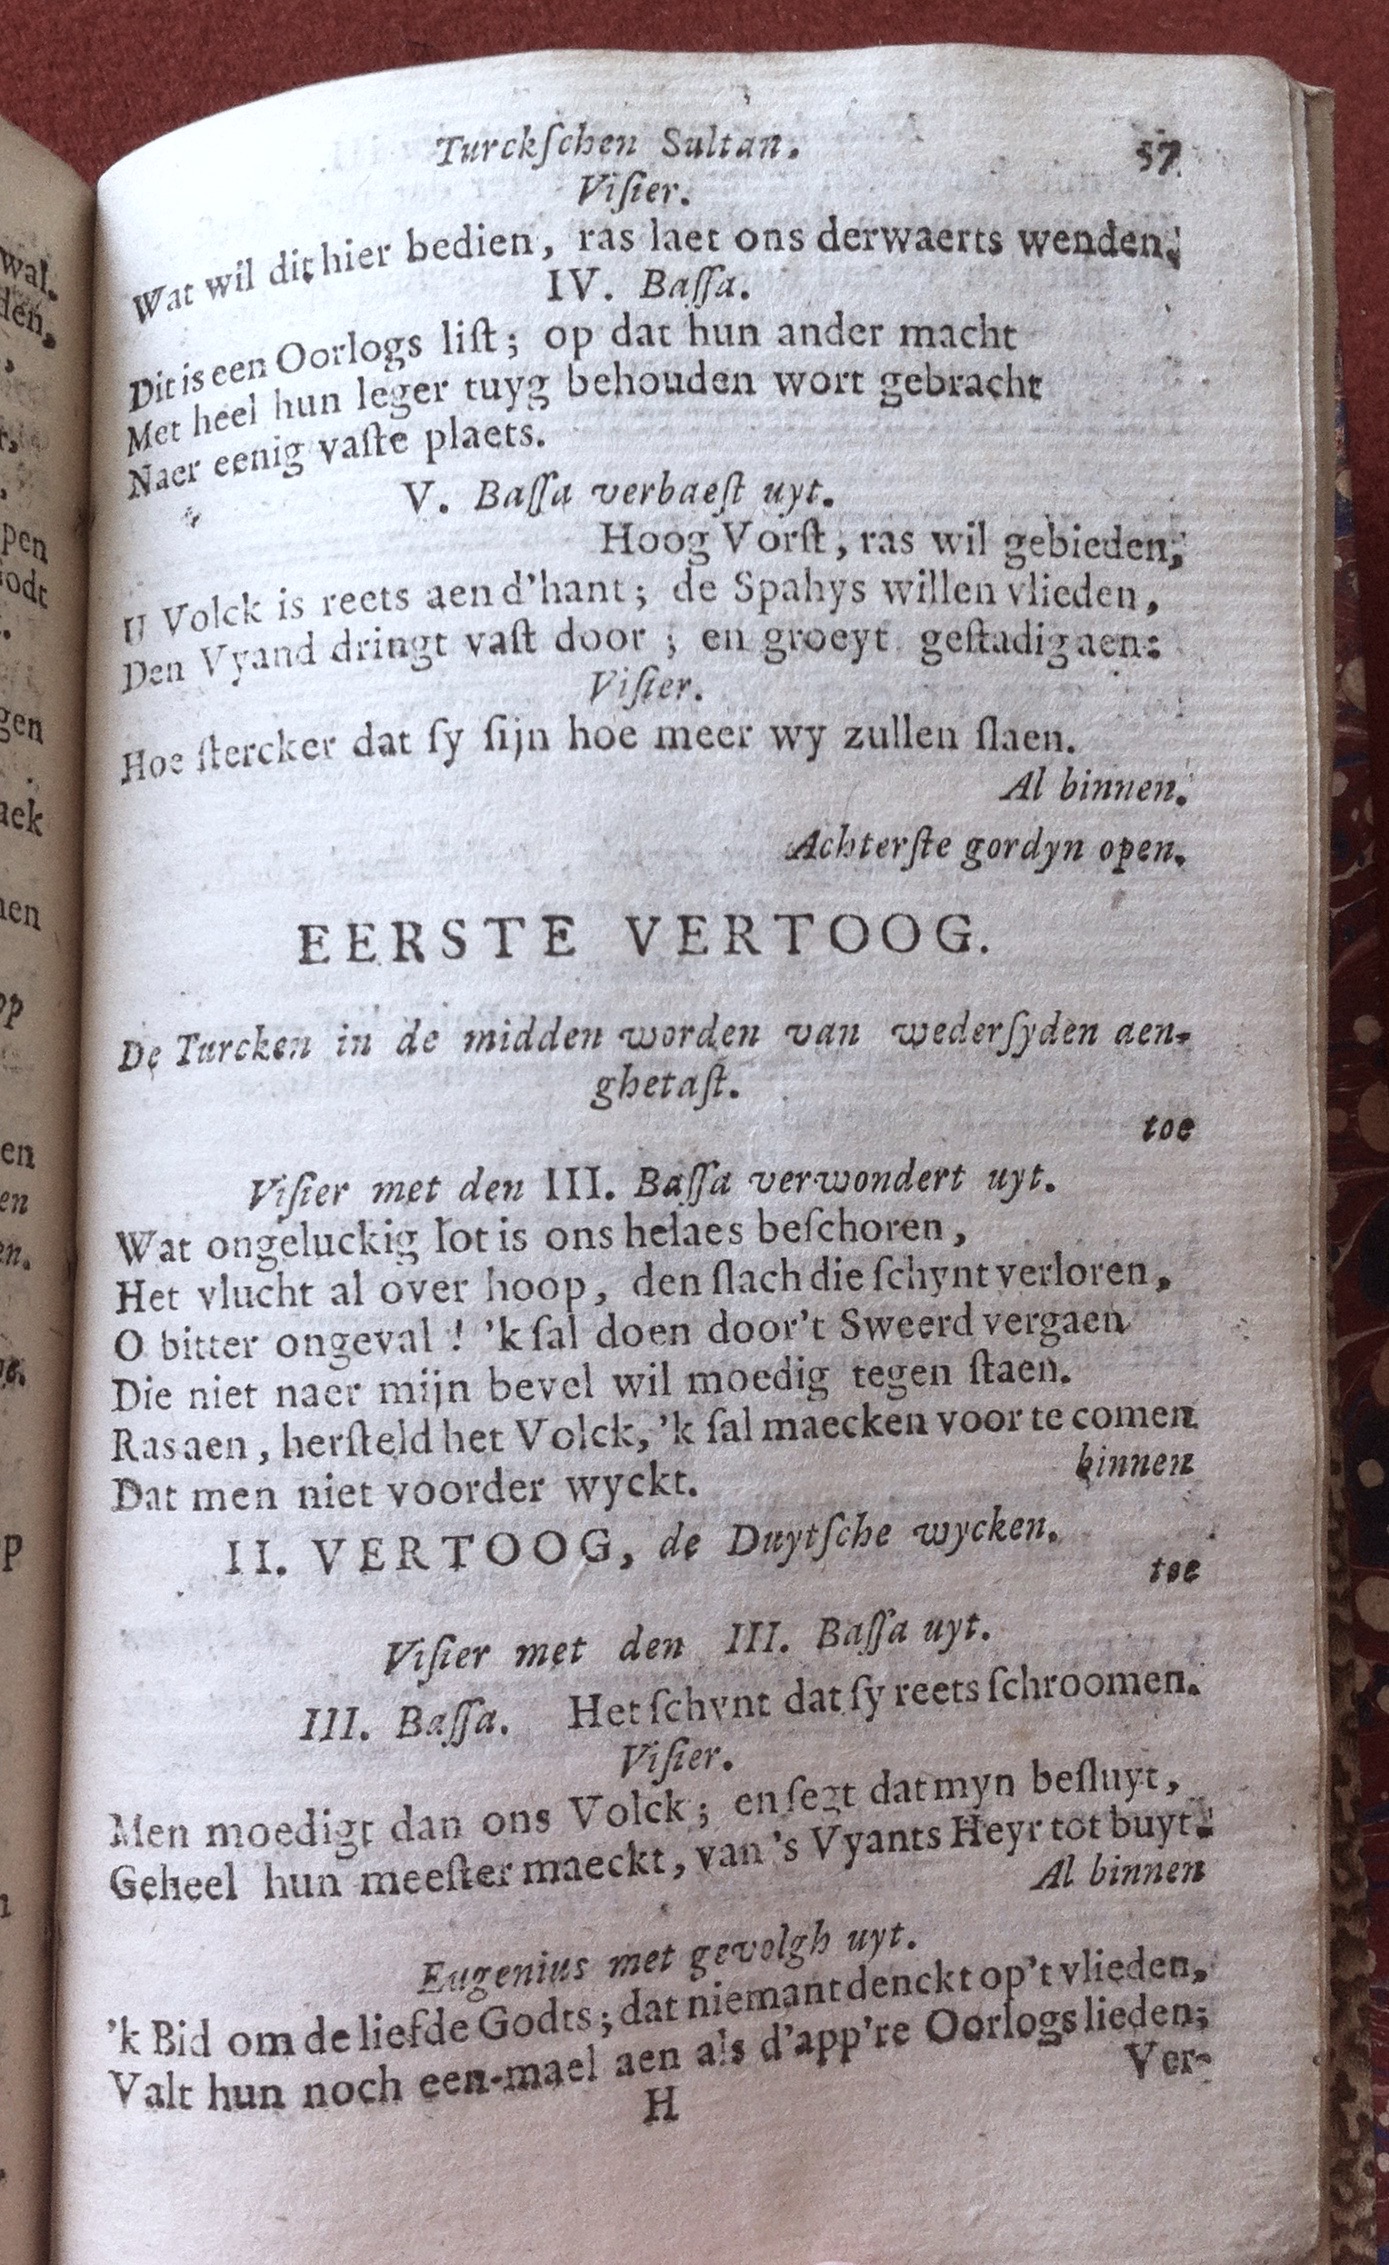 Turckſchen Sultan. 57
Viſier.
Wat wil dit hier bedien, ras laet ons derwaerts wenden.
IV. Baſſa.
Dit is een Oorlogs liſt; op dat hun ander macht
Met heel hun leger tuyg behouden wort gebracht
Naer eenig vaſte plaets.
V. Baſſa verbaeſt uyt.
Hoog Vorſt, ras wil gebieden,
U Volck is reets aen d'hant; de Spahys willen vlieden,
Den Vyand dringt vaſt door; en groeyt geſtadig aen:
Viſier.
Hoe ſtercker dat ſy ſijn hoe meer wy zullen ſlaen.
Al binnen.
Achterſte gordyn open.
EERSTE VERTOOG.
De Turcken in de midden worden van wederſyden aen-
ghetaſt.
toe
Viſier met den III. Baſſa verwondert uyt.
Wat ongeluckig lot is ons helaes beſchoren,
Het vlucht al over hoop, den ſlach die ſchynt verloren,
O bitter ongeval! 'k ſal doen door't Sweerd vergaen
Die niet naer mijn bevel wil moedig tegen ſtaen.
Ras aen, herſteld het Volck, 'k ſal maecken voor te comen
binnen
Dat men niet voorder wyckt.
II. VERTOOG, de Duytſche wycken.
toe
Viſier met den III. Baſſa uyt.
III. Baſſa. Het ſchynt dat ſy reets ſchroomen.
Viſier.
Men moedigt dan ons Volck; en ſegt dat myn beſluyt,
Geheel hun meeſter maeckt, van 's Vyants Heyr tot buyt.
Al binnen
Eugenius met gevolgh uyt.
'k Bid om de liefde Godts; dat niemant denckt op't vlieden,
Valt hun noch een-mael aen als d'app're Oorlogs lieden;
Ver-
H